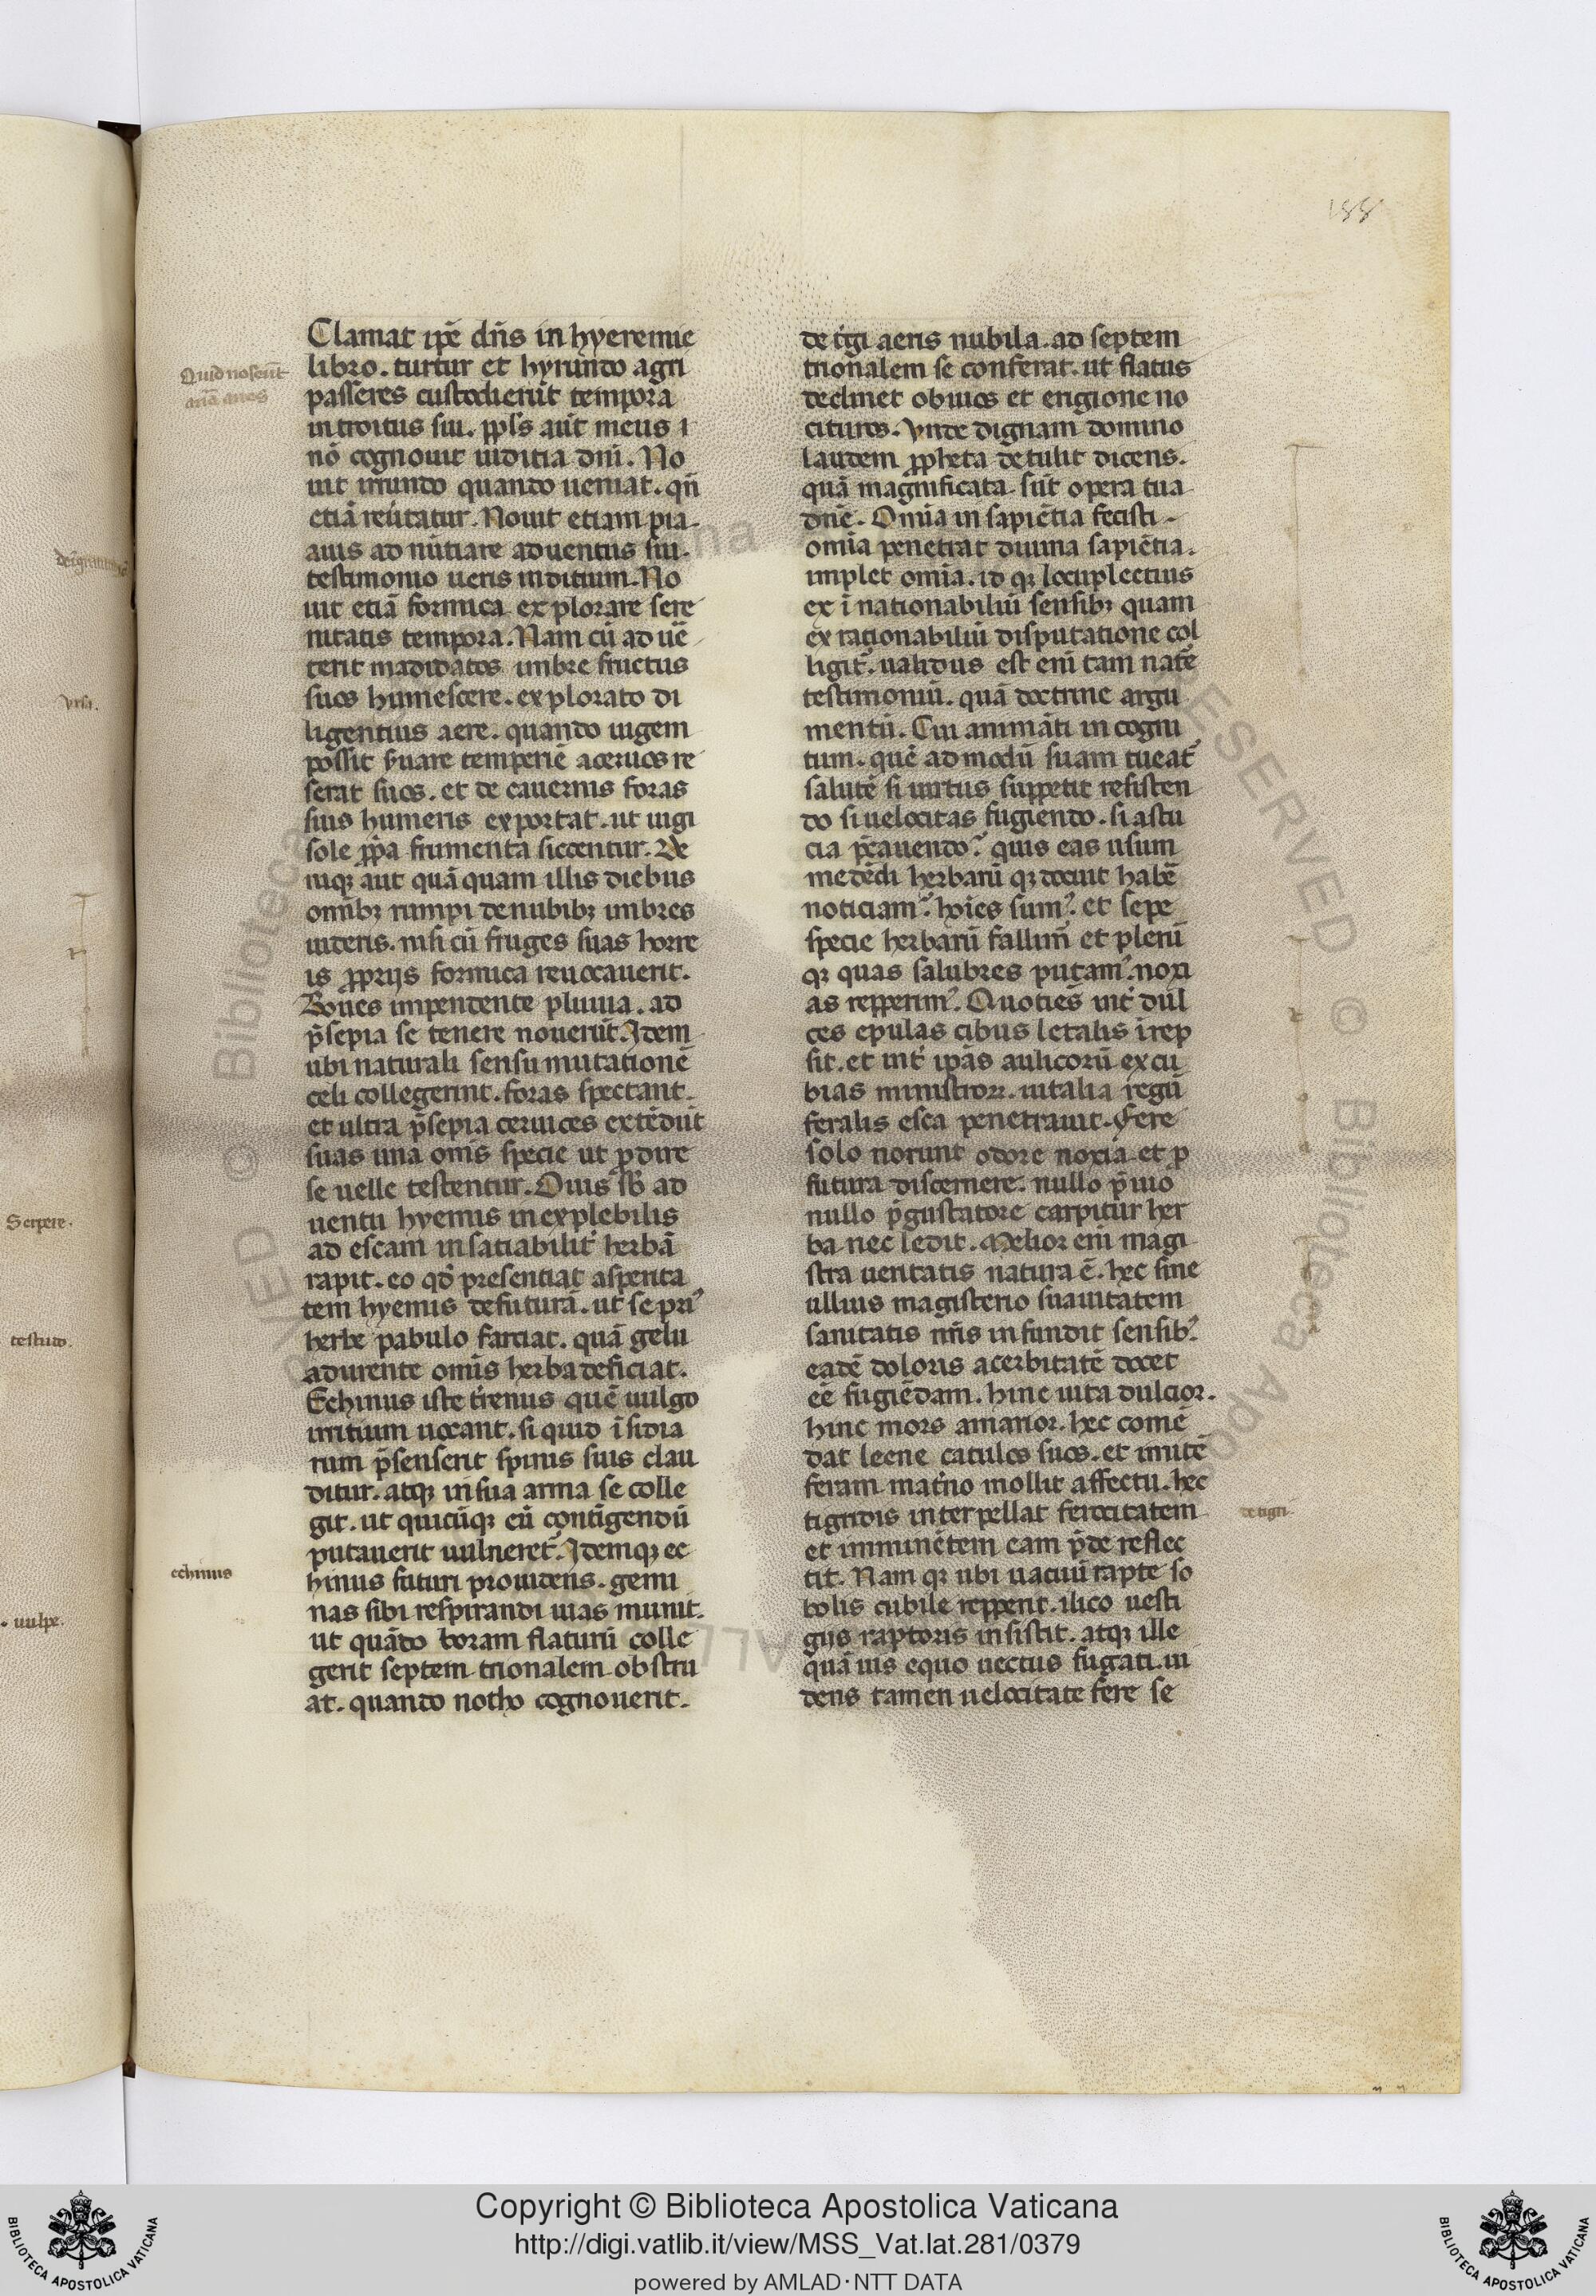 188
Quid noscũt
Clamat ip̃e dñs in hyeremie
libro. turtur et hyrundo agri
passeres custodierũt tempora
introitus sui. ppl̃s aũt meus
nõ cognouit iuditia dñi. No
uit irundo quando ueniat. qñ
etiã reũtatur. Nouit etiam pia
auis ad nũtiare aduentus sui.
testimonio ueris inditium. No
uit etiã formica explorare sere
nitatis tempora. Nam cũ aduẽ
terit madidatos imbre fructus
suos humescere. explorato di
ligentius aere. quando iugem
possit s̃uare temperiẽ aceruos re
serat suos. et de cauernis foras
suis humeris exportat. ut iugi
sole ꝓpa frumenta siccentur. De
niqꝫ aut quã quam illis diebus
omibꝫ rumpi denubibꝫ imbres
uideris. nisi cũ fruges suas horre
is ꝓprijs formica reuocauerit.
Boues impendente pluuia. ad
p̃sepia se tenere nouerũt. Idem
ubi naturali sensu mutationẽ
celi collegerint. foras spectant.
et ultra p̃sepia ceruices extẽdũt
suas una om̃s specie ut ꝓdire
se uelle testentur. Ouis sb̃ ad
uentu hyemis inexplebilis
ad escam insatiabilit̃ herbã
rapit. eo qđ presentiat asperita
tem hyemis defuturã. ut se pri᾽
herbe pabulo farciat. quã gelu
adurente omis herba deficiat.
Echinus iste t̃renus quẽ uulgo
iritium uocant. si quid ĩsidia
rum p̃senserit spinis suis clau
ditur. atqꝫ in sua arma se colle
git. ut quicũqꝫ eũ contĩgendũ
putauerit uulneret᾽. Idemqꝫ ec
echinus
hinus futuri prouidens. gemi
nas sibi respirandi uias munit.
ut quãdo boram flaturũ colle
gerit septem trionalem obstru
at. quando notho cognouerit.
det̃gi aeris nubila. ad septem
trionalem se conferat. ut flatus
declinet obuios et erigione no
cituros. Vnde dignam domino
laudem ꝓpheta detulit dicens.
quã magnificata sũt opera tua
dñe. Omĩa in sapiẽtia fecisti.
omĩa penetrat diuina sapiẽtia.
implet omĩa. id qꝫ locuplectius
ex ĩ rationabiliũ sensibꝫ quam
ex rationabiliũ disputatione col
ligit᾽. ualidus est enĩ tam nat̃e
testimoniũ. quã doctrine argu
mentũ. Cui animãti in cogni
tum. quẽ ad modũ suam tueat᾽
salutẽ si uirtus suppetit resisten
do si uelocitas fugiendo. si astu
cia p̃cauendo᾽. quis eas usum
medẽdi herbarũ qꝫ docuit habẽ
noticiam᾽. hoĩes sum᾽. et sepe
specie herbarũ fallim᾽ et plerũ
qꝫ quas salubres putam᾽. noxi
as repperim᾽. Quotiẽs int̃ dul
ces epulas cibus letalis ĩrep
sit. et int̃ ip̃as aulicorũ excu
bias ministroꝝ. uitalia regũ
feralis esca penetrauit. Fere
solo norunt odore noxia et ꝓ
futura discernere. nullo p̃uio
nullo p̃gustatore carpitur her
ba nec ledit. Melior enĩ magi
stra ueritatis natura ẽ. hec sine
ullius magisterio suauitatem
sanitatis nr̃is infundit sensib᾽.
eadẽ doloris acerbitatẽ docet
eẽ fugiẽdam. hinc uita dulcior.
hinc mors amarior. hec comẽ
dat leene catulos suos. et imitẽ
feram mat̃no mollit affectu. hec
tigridis interpellat ferocitatem
de tigri
et imminẽtem eam p̃de reflec
tit. Nam qꝫ ubi uacuũ rapte so
bolis cubile repperit. ilico uesti
gijs raptoris insistit. atqꝫ ille
quã uis equo uectus fugaci. ui
dens tamen uelocitate fere se
Vrsi.
Serpere.
testudo.
uulpe.
Copyright © Biblioteca Apostolica Vaticana
http://digi.vatlib.it/view/MSS_Vat.lat.281/0379
powered by AMLAD·NTT DATA
BIBLIOTECA APOSTOLICA VATICANA
BIBLIOTECA APOSTOLICA VATICANA